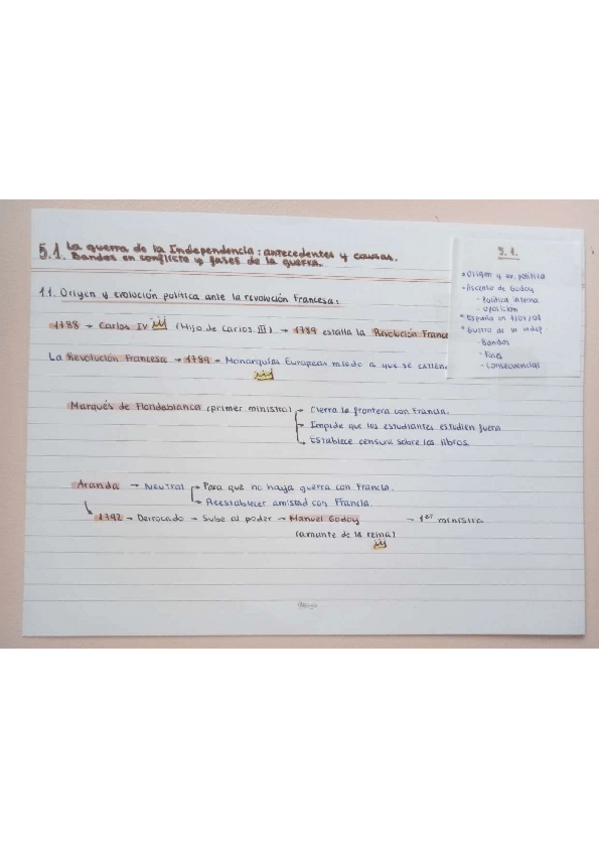 5.1. La guerra de la Independencia: antecedentes y causas.
Bandos en conflicto y fases de la guerra.
1.1. Origen y evolución política ante la revolución Francesa:
1788 → Carlos IV (Hijo de Carlos III) → 1789 estalla la Revolución France
La Revolución Francesa → 1789 → Monarquías Europeas miedo a que se extien
Marqués de Floridablanca (primer ministro) → Cierra la frontera con Francia.
→ Impide que los estudiantes estudien fuera
→ Establece censura sobre los libros.
Aranda → Neutral → Para que no haya guerra con Francia.
→ Reestablecer amistad con Francia.
1792 → Derrocado → Sube al poder → Manuel Godoy → 1er ministro
(amante de la reina)
5.1.
Origen y ev. política
Ascenso de Godoy
- Política interna
- Oposición
España en
Guerra de la indep.
- Bandos
- Fases
- Consecuencias